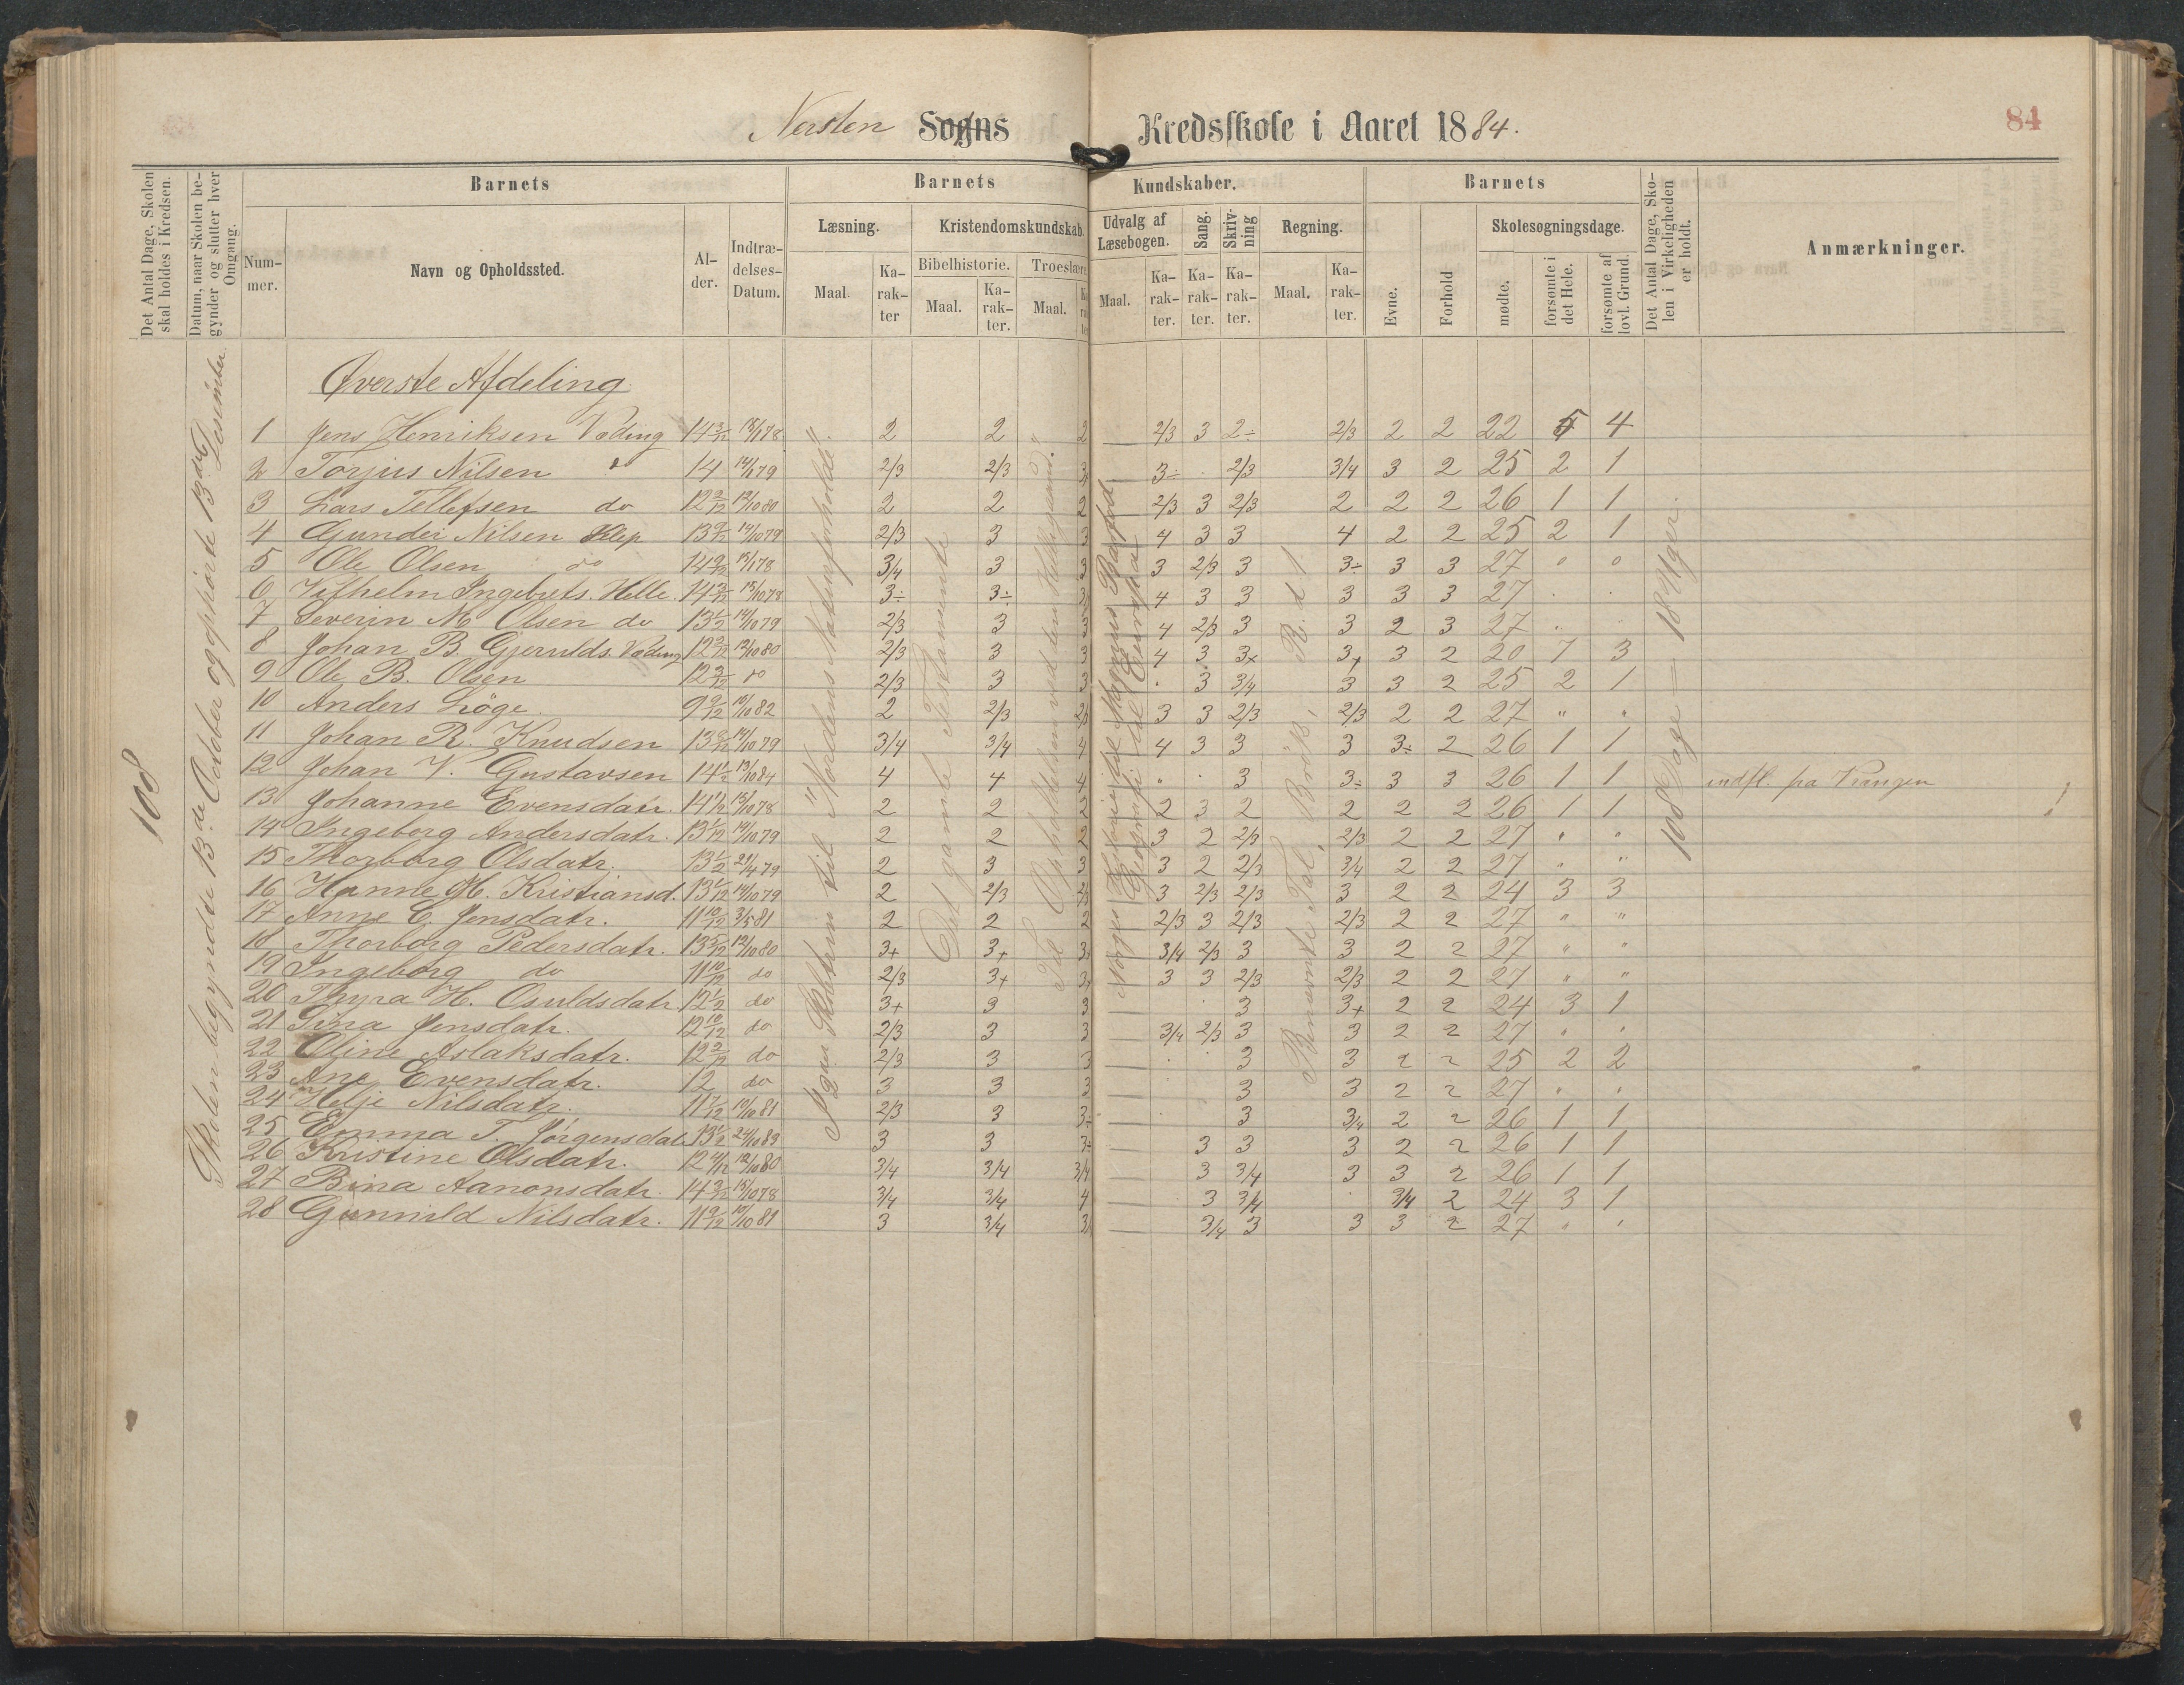 Nersten Sogns Kredsskole i Aaret 1884.
84
Det Antal Dage, Skolen skal holdes i Kredsen.
Datum, naar Skolen begynder og slutter hver Omgang.
Barnets
Nummer.
Navn og Opholdssted.
Alder.
Indtrædelses-Datum.
Barnets Kundskaber.
Læsning.
Maal.
Karakter
Kristendomskundskab.
Bibelhistorie.
Maal.
Karakter.
Troeslære
Maal.
Udvalg af Læsebogen.
Maal.
Karakter.
Sang.
Karakter.
Skrivning
Karakter.
Regning.
Maal.
Karakter.
Barnets
Evne.
Forhold
Skolesøgningsdage.
mødte.
forsømte i det Hele.
forsømte af lovl. Grund.
Det Antal Dage, Skolen i Virkeligheden er holdt.
Anmærkninger.
108
Skolen begyndte 13de October og ophørte 13de Desember
Øverste Afdeling
1 Jens Henriksen Væding 14 3/12 15/1 78 2 2 2 2/3 3 2÷ 2/3 2 2 22 5 4
2 Torjus Nilsen do 14 14/1 79 2/3 2/3 3 3÷ 2/3 3/4 3 2 25 2 1
3 Lars Tellefsen do 12 3/12 12/10 80 2 2 2 2/3 3 2/3 2 2 2 26 1 1
4 Gunder Nilsen Klep 13 9/12 14/10 79 2/3 3 3 4 3 3 4 2 2 25 2 1
5 Ole Olsen do 14 9/12 15/1 78 3/4 3 3 3 2/3 3 3÷ 3 3 27 " "
6 Vilhelm Ingebrets. Helle 14 3/12 15/10 78 3÷ 3÷ 3 4 3 3 3 3 3 27
7 Severin M Olsen do 13 1/2 14/10 79 2/3 3 3 4 2/3 3 3 2 3 27
8 Johan B. Gjerulds. Væding 12 3/12 12/10 80 2/3 3 3 4 3 3+ 3+ 3 2 20 7 3
9 Ole B. Olsen 12 3/12 do 2/3 3 3 3 3/4 3 3 2 25 2 1
10 Anders Løge. 9 9/12 10/10 82 2 2/3 2/3 3 3 2/3 2/3 2 2 27 " "
11 Johan R. Knudsen 13 8/12 14/10 79 3/4 3/4 4 4 3 3 3 3÷ 2 26 1 1
12 Johan V. Gustavsen 14 1/2 13/10 84 4 4 4 " 3 3÷ 3 3 26 1 1 indfl. fra Vrangen
13 Johanne Evensdatr. 14 1/12 15/10 78 2 2 2 2 3 2 2 2 2 26 1 1
14 Ingeborg Andersdatr. 13 1/12 14/10 79 2 2 2 3 2 2/3 2/3 2 2 27 " "
15 Thorborg Olsdatr. 13 1/2 21/4 79 2 3 3 3 2 2/3 3/4 2 2 27 " "
16 Hanne M. Kristiansd. 13 1/12 14/10 79 2 2/3 2/3 3 2/3 2/3 3 2 2 24 3 3
17 Anne C. Jensdatr. 11 10/12 3/5 81 2 2 2 2/3 3 2/3 2/3 2 2 27 " "
18 Thorborg Pedersdatr. 13 5/12 12/10 80 3+ 3+ 3 3/4 2/3 3 3 2 2 27 " "
19 Ingeborg do 11 10/12 do 2/3 3+ 3 3 3 2/3 2/3 2 2 27 " "
20 Thyra H. Osuldsdatr. 12 1/2 do 3+ 3 3 3 3+ 2 2 24 3 1
21 Sina Jensdatr. 12 10/12 do 2/3 3 3 3/4 2/3 3 3 2 2 27 " "
22 Oline Aslaksdatr. 12 2/12 do 2/3 3 3 3 3 2 2 25 2 2
23 Ane Evensdatr. 12 do 3 3 3 3 3 2 2 27 " "
24 Helje Nilsdatr. 11 7/12 10/10 81 2/3 3 3÷ 3 3/4 2 2 26 1 1
25 Emma T. Jørgensdat. 13 1/2 24/10 83 3 3 3÷ 3 3 3 2 2 26 1 1
26 Kristine Olsdatr. 12 4/12 12/10 80 3/4 3/4 3/4 3 3/4 3 3 2 26 1 1
27 Bina Aanonsdatr. 14 3/12 15/10 78 3/4 3/4 4 3 3/4 3/4 2 24 3 1
28 Gunnild Nilsdatr. 11 9/12 10/10 81 3 3/4 3 3/4 3 3 3 2 27 " "
til "Nordens Naturforholde".
Det gamle Testamente
Til Opholdelsen ved den Helligaand.
Benævnte Tal, Brøk, R. d 1
108 Dage = 18 Uger.